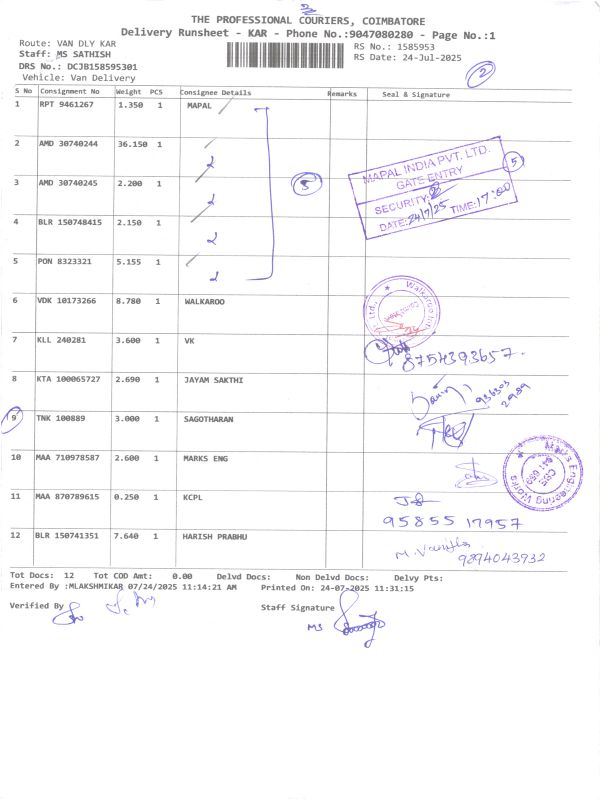 2
THE PROFESSIONAL COURIERS, COIMBATORE
Delivery Runsheet - KAR - Phone No.:9047080280 - Page No.:1
Route: VAN DLY KAR
RS No.: 1585953
Staff: MS SATHISH
RS Date: 24-Jul-2025
DRS No.: DCJB158595301
Vehicle: Van Delivery
2
S No Consignment No Weight PCS Consignee Details Remarks Seal & Signature
1 RPT 9461267 1.350 1 MAPAL
2 AMD 30740244 36.150 1
MAPAL INDIA PVT. LTD.
GATE ENTRY
SECURITY:
DATE: 24/7/25 TIME: 17:00
5
3 AMD 30740245 2.200 1
5
4 BLR 150748415 2.150 1
5 PON 8323321 5.155 1
6 VDK 10173266 8.780 1 WALKAROO
Walkaroo
7 KLL 240281 3.600 1 VK
8754393657.
8 KTA 100065727 2.690 1 JAYAM SAKTHI
9 TNK 100889 3.000 1 SAGOTHARAN
10 MAA 710978587 2.600 1 MARKS ENG
Marks Engineering Works
CBE
641 659
11 MAA 870789615 0.250 1 KCPL
95855 17957
12 BLR 150741351 7.640 1 HARISH PRABHU
M. Vanitha
9894043932
Tot Docs: 12 Tot COD Amt: 0.00 Delvd Docs: Non Delvd Docs: Delvy Pts:
Entered By :MLAKSHMIKAR 07/24/2025 11:14:21 AM Printed On: 24-07-2025 11:31:15
Verified By
Staff Signature
MS